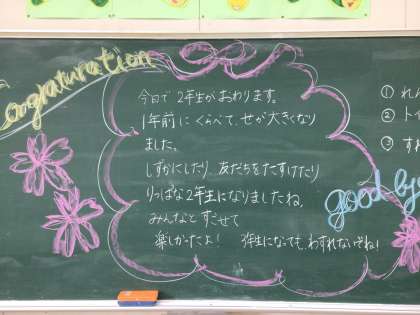 Congraturation
今日で2年生がおわります。
1年前にくらべて、せが大きくなり
ました。
しずかにしたり、友だちをたすけたり
りっぱな2年生になりましたね。
みんなとすごせて
楽しかったよ! 3年生になっても、わすれないでね!
good by
① れん
② トイ
③ すれ